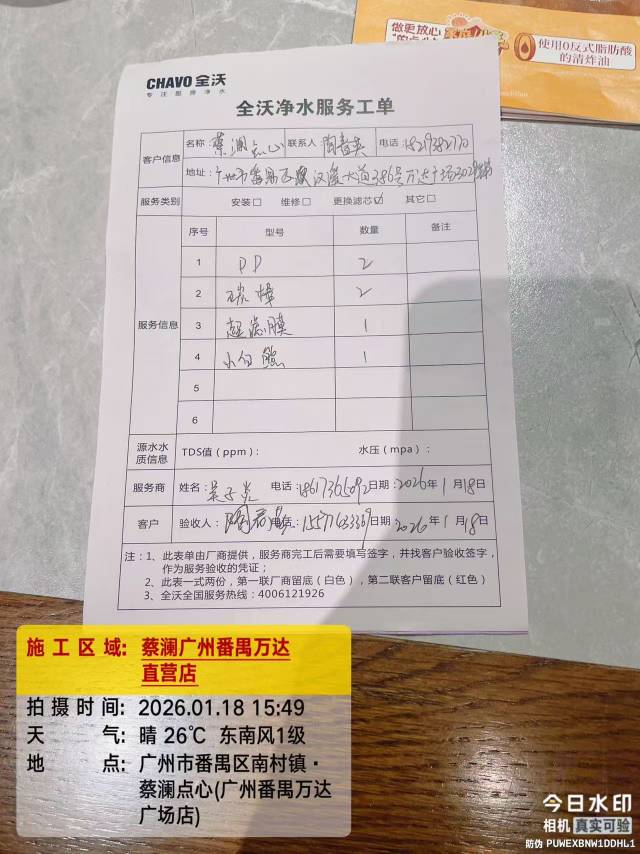 做更放心
使用0反式脂肪酸
的清炸油
CHAVO全沃
专注厨房净水
全沃净水服务工单
客户信息 名称：蔡澜点心 联系人 电话：18219382770
地址：广州市番禺区 汉溪大道386号万达广场3029
服务类别 安装□ 维修□ 更换滤芯☑ 其它□
服务信息 序号 型号 数量 备注
1 PP 2
2 碳棒 2
3 超滤膜 1
4 小白熊 1
5
6
源水水质信息 TDS值（ppm）： 水压（mpa）：
服务商 姓名：吴子炎 电话：18617365092 日期：2026年1月18日
客户 验收人： 电话： 日期 2026年1月18日
注：1、此表单由厂商提供，服务商完工后需要填写签字，并找客户验收签字，
作为服务验收的凭证；
2、此表一式两份，第一联厂商留底（白色），第二联客户留底（红色）
3、全沃全国服务热线：4006121926
施工区域：蔡澜广州番禺万达
直营店
拍摄时间：2026.01.18 15:49
天气：晴 26℃ 东南风1级
地点：广州市番禺区南村镇·
蔡澜点心(广州番禺万达
广场店)
今日水印
相机 真实可验
防伪 PUWEXBNW1DDHL1